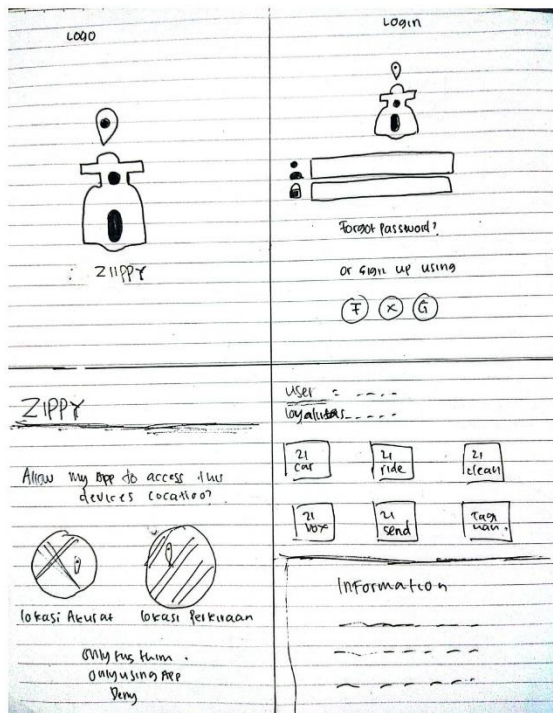 LOGO
ZIIPPY
Login
Forgot password?
or sign up using
F X G
ZIPPY
Allow my App to access this
devices location?
lokasi Akurat lokasi Perkiraan
only using App
Deny
user =
loyalitas
21 car 21 ride 21 clean
21 box 21 send
Information